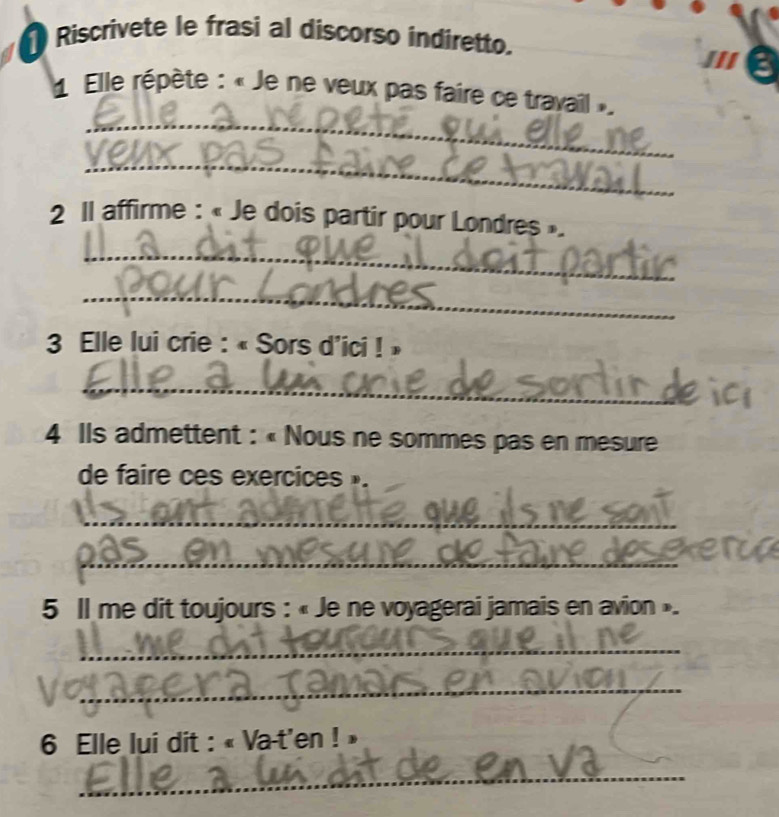 1 Riscrivete le frasi al discorso indiretto.
3
1 Elle répète : « Je ne veux pas faire ce travail ».
Elle a répeté qui elle ne
veux pas faire ce travail
2 Il affirme : « Je dois partir pour Londres ».
Il a dit que il doit partir
pour Londres
3 Elle lui crie : « Sors d'ici ! »
Elle a lui crie de sortir de ici
4 Ils admettent : « Nous ne sommes pas en mesure
de faire ces exercices ».
ils ont admetté que ils ne sont
pas en mesure de faire des exercice
5 Il me dit toujours : « Je ne voyagerai jamais en avion ».
Il me dit toujours que il ne
voyagera jamais en avion
6 Elle lui dit : « Va-t'en ! »
Elle a lui dit de en va